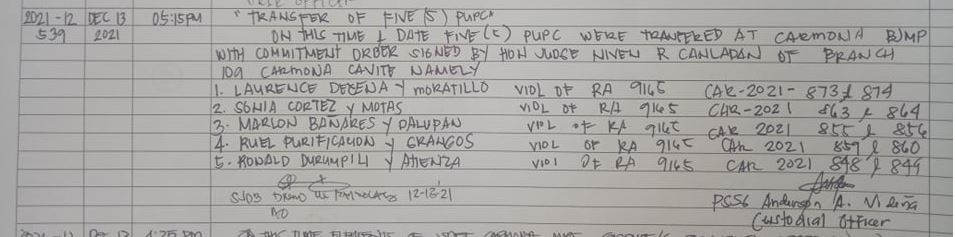 2021-12 DEC 13 05:15PM "TRANSFER OF FIVE (5) PUPC"
539 2021 ON THIS TIME & DATE FIVE (5) PUPC WERE TRANFERED AT CARMONA BJMP
WITH COMMITMENT ORDER SIGNED BY HON JUDGE NIVEN R CANLADAN OF BRANCH
109 CARMONA CAVITE NAMELY
1. LAURENCE DECENA Y MORATILLO VIOL OF RA 9165 CAR-2021-873 & 874
2. SONIA CORTEZ Y MOTAS VIOL OF RA 9165 CAR-2021 863 & 864
3. MARLON BANARES Y DALUPAN VIOL OF RA 9165 CAR 2021 855 & 856
4. RUEL PURIFICACION Y GRANGOS VIOL OF RA 9165 CAR 2021 859 & 860
5. RONALD DURUMPILI Y ATIENZA VIOL OF RA 9165 CAR 2021 848 & 849
SJO3 12-13-21
PSSG Anderson A. Videña
Custodial Officer